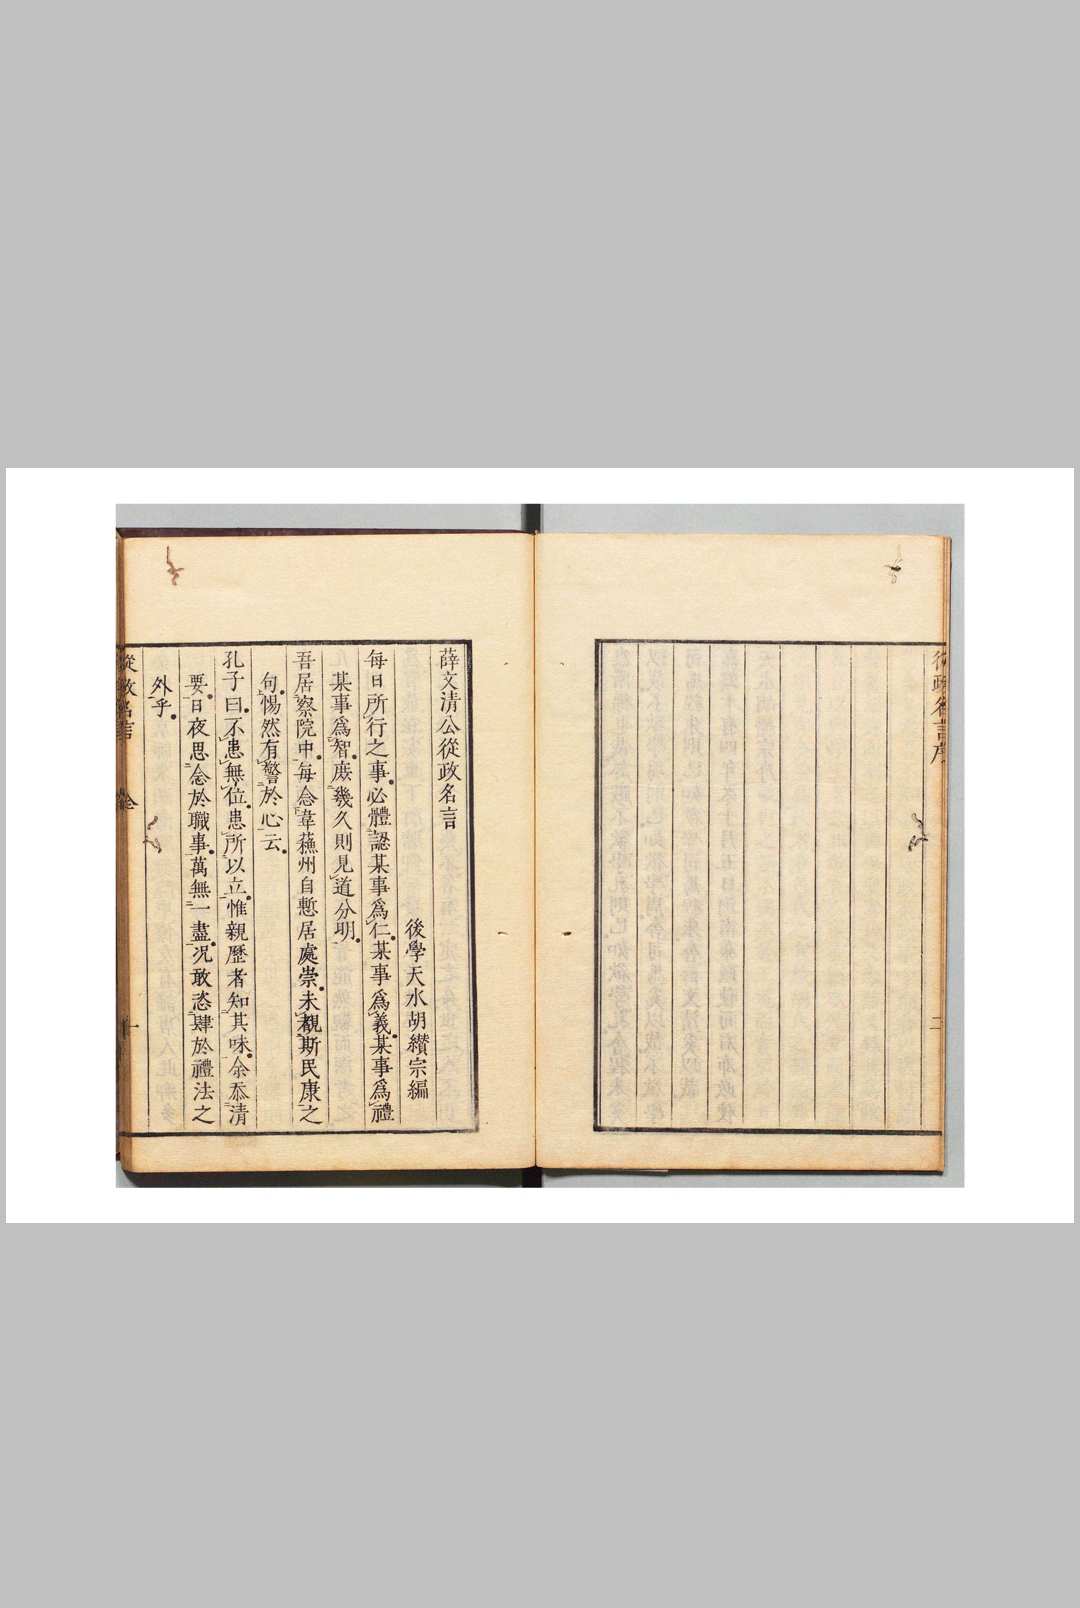 薛文清公從政名言
後學天水胡纘宗編
每日所行之事必體認某事爲仁某事爲義某事爲禮
某事爲智庶幾久則見道分明
吾居察院中每念韋蘇州自慙居處崇未覩斯民康之
句惕然有警於心云
孔子曰不患無位患所以立惟親歷者知其味余忝清
要日夜思念於職事萬無一盡況敢恣肆於禮法之
外乎
從政名言 全 一